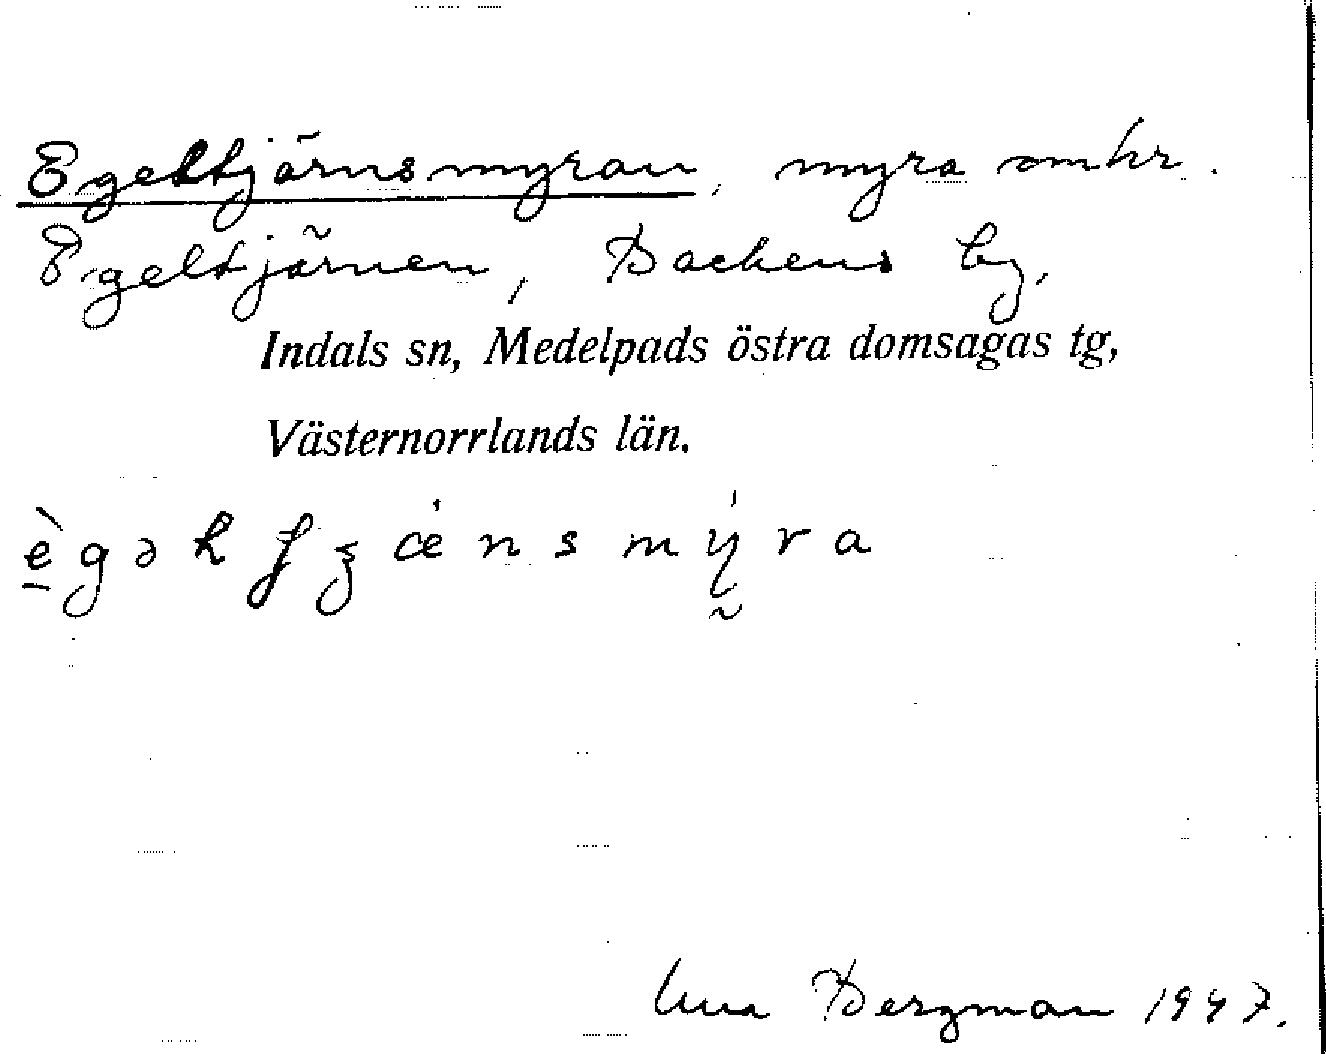 Egeltjärnsmyran, myra omkr.
Egeltjärnen, Backens by,
Indals sn, Medelpads östra domsagas tg,
Västernorrlands län.
1947.
Bergman